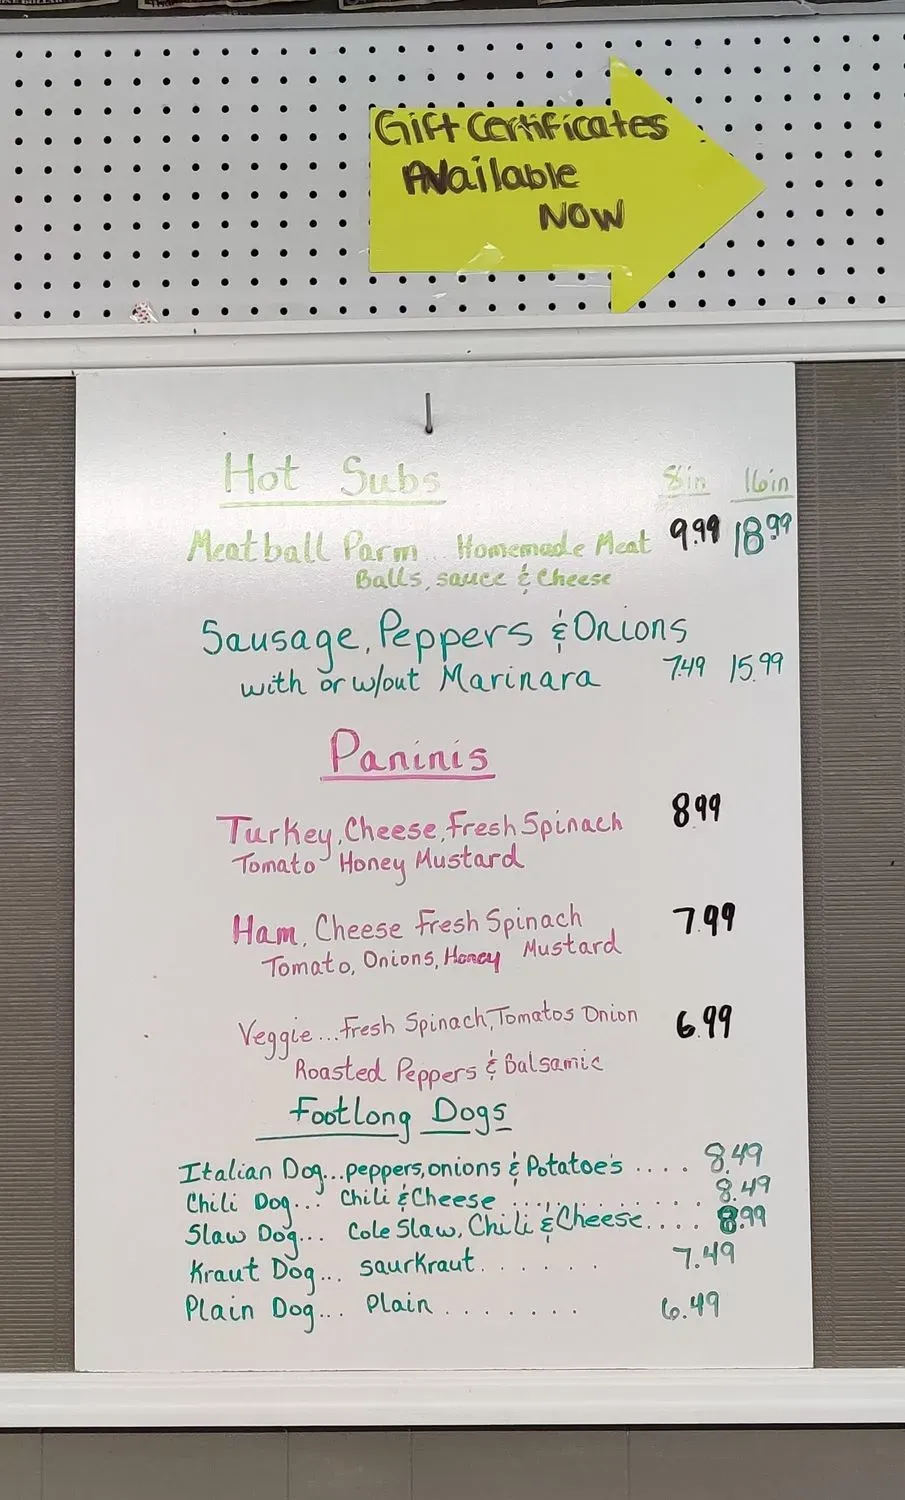 Gift Certificates
Available
NOW
Hot Subs 8in 16in
Meatball Parm... Homemade Meat 9.99 18.99
Balls, sauce & Cheese
Sausage, Peppers & Onions
with or w/out Marinara 7.49 15.99
Paninis
Turkey, Cheese, Fresh Spinach 8 99
Tomato Honey Mustard
Ham, Cheese Fresh Spinach 7.99
Tomato, Onions, Honey Mustard
Veggie... Fresh Spinach, Tomatos Onion 6.99
Roasted Peppers & Balsamic
Footlong Dogs
Italian Dog... peppers, onions & Potatoe's .... 8.49
Chili Dog... Chili & Cheese .............. 8.49
Slaw Dog... Cole Slaw, Chili & Cheese.... 8.99
Kraut Dog... saurkraut. . . . . . 7.49
Plain Dog... Plain . . . . . . . 6.49